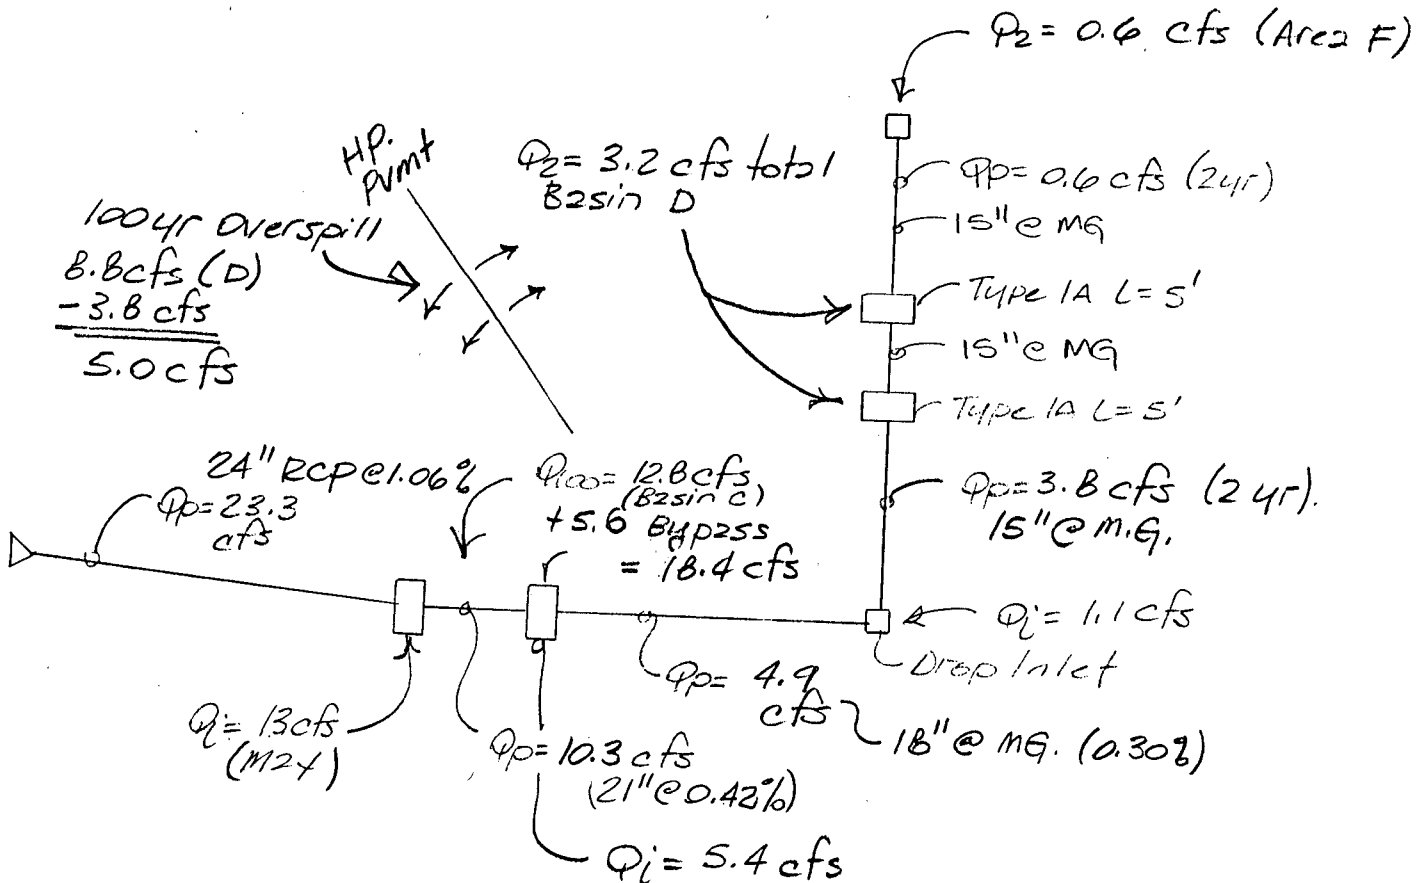 Q2 = 0.6 cfs (Area F)
HP.
Pvmt
Q2 = 3.2 cfs total
Basin D
Qp = 0.6 cfs (2yr)
15" @ MG
100yr Overspill
8.8cfs (D)
- 3.8 cfs
5.0 cfs
Type 1A L = 5'
15" @ MG
Type 1A L = 5'
24" RCP @ 1.06%
Qp = 23.3
cfs
Q100 = 12.8 cfs
(Basin C)
+ 5.6 Bypass
= 18.4 cfs
Qp = 3.8 cfs (2 yr).
15" @ M.G.
Qi = 1.1 cfs
Drop Inlet
Qp = 4.9
cfs
18" @ MG. (0.30%)
Qi = 13 cfs
(Max)
Qp = 10.3 cfs
(21" @ 0.42%)
Qi = 5.4 cfs